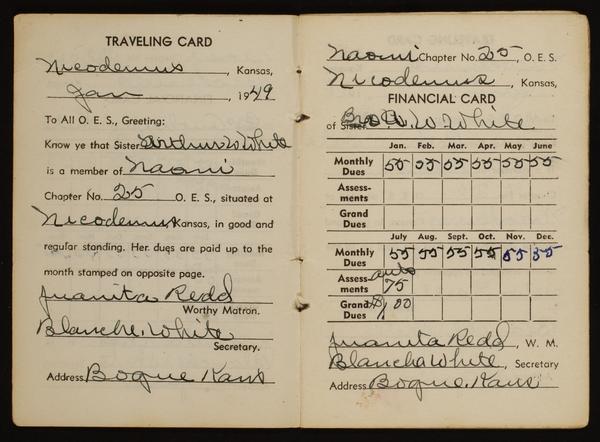 TRAVELING CARD
Nicodemus, Kansas,
Jan, 1949
To All O. E. S., Greeting:
Know ye that Sister Arthur W White
is a member of Naomi
Chapter No. 25 O. E. S., situated at
Nicodemus, Kansas, in good and
regular standing. Her dues are paid up to the
month stamped on opposite page.
Juanita Redd
Worthy Matron.
Blanche White
Secretary.
Address Bogue Kans
Naomi Chapter No. 25, O. E. S.
Nicodemus, Kansas,
FINANCIAL CARD
of Sister Bro A. W White
Jan. Feb. Mar. Apr. May June
Monthly Dues 55 55 55 55 55 55
Assess-
ments
Grand
Dues
July Aug. Sept. Oct. Nov. Dec.
Monthly Dues 55 55 55 55 55 55
Assess-
ments 75
Grand
Dues $1.00
Juanita Redd, W. M.
Blancha White, Secretary
Address Bogue, Kans